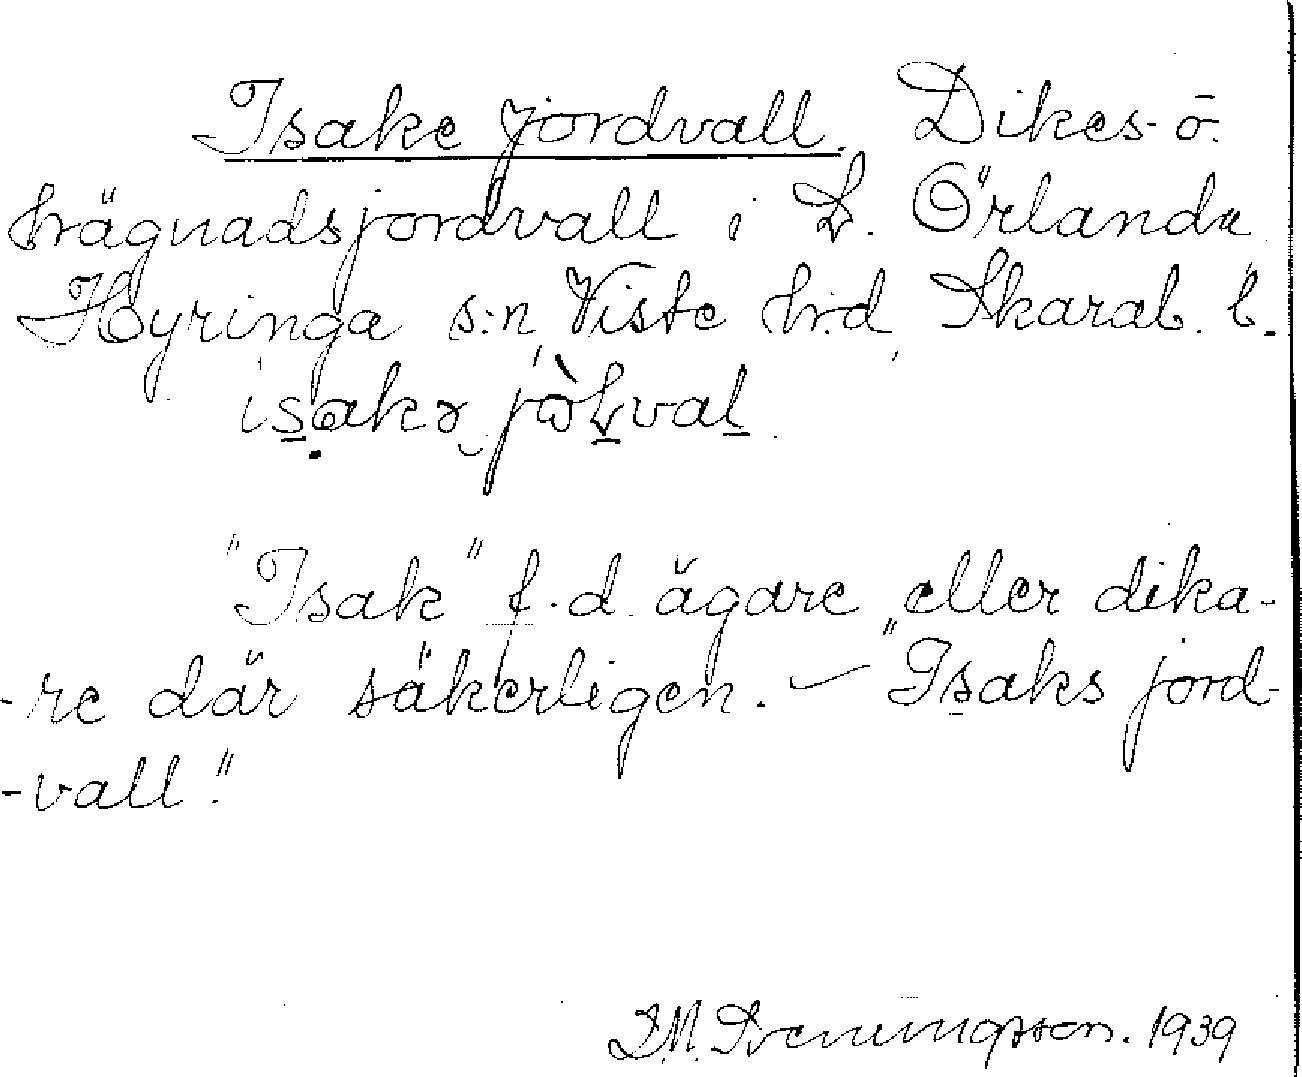 Isake jordvall. Dikes- o.
hägnadsjordvall i L. Örlanda
Hyringa s:n, Viste h:d, Skarab. l.
"Isak" f.d. ägare eller dika-
-re där säkerligen. – "Isaks jord-
-vall."
1939